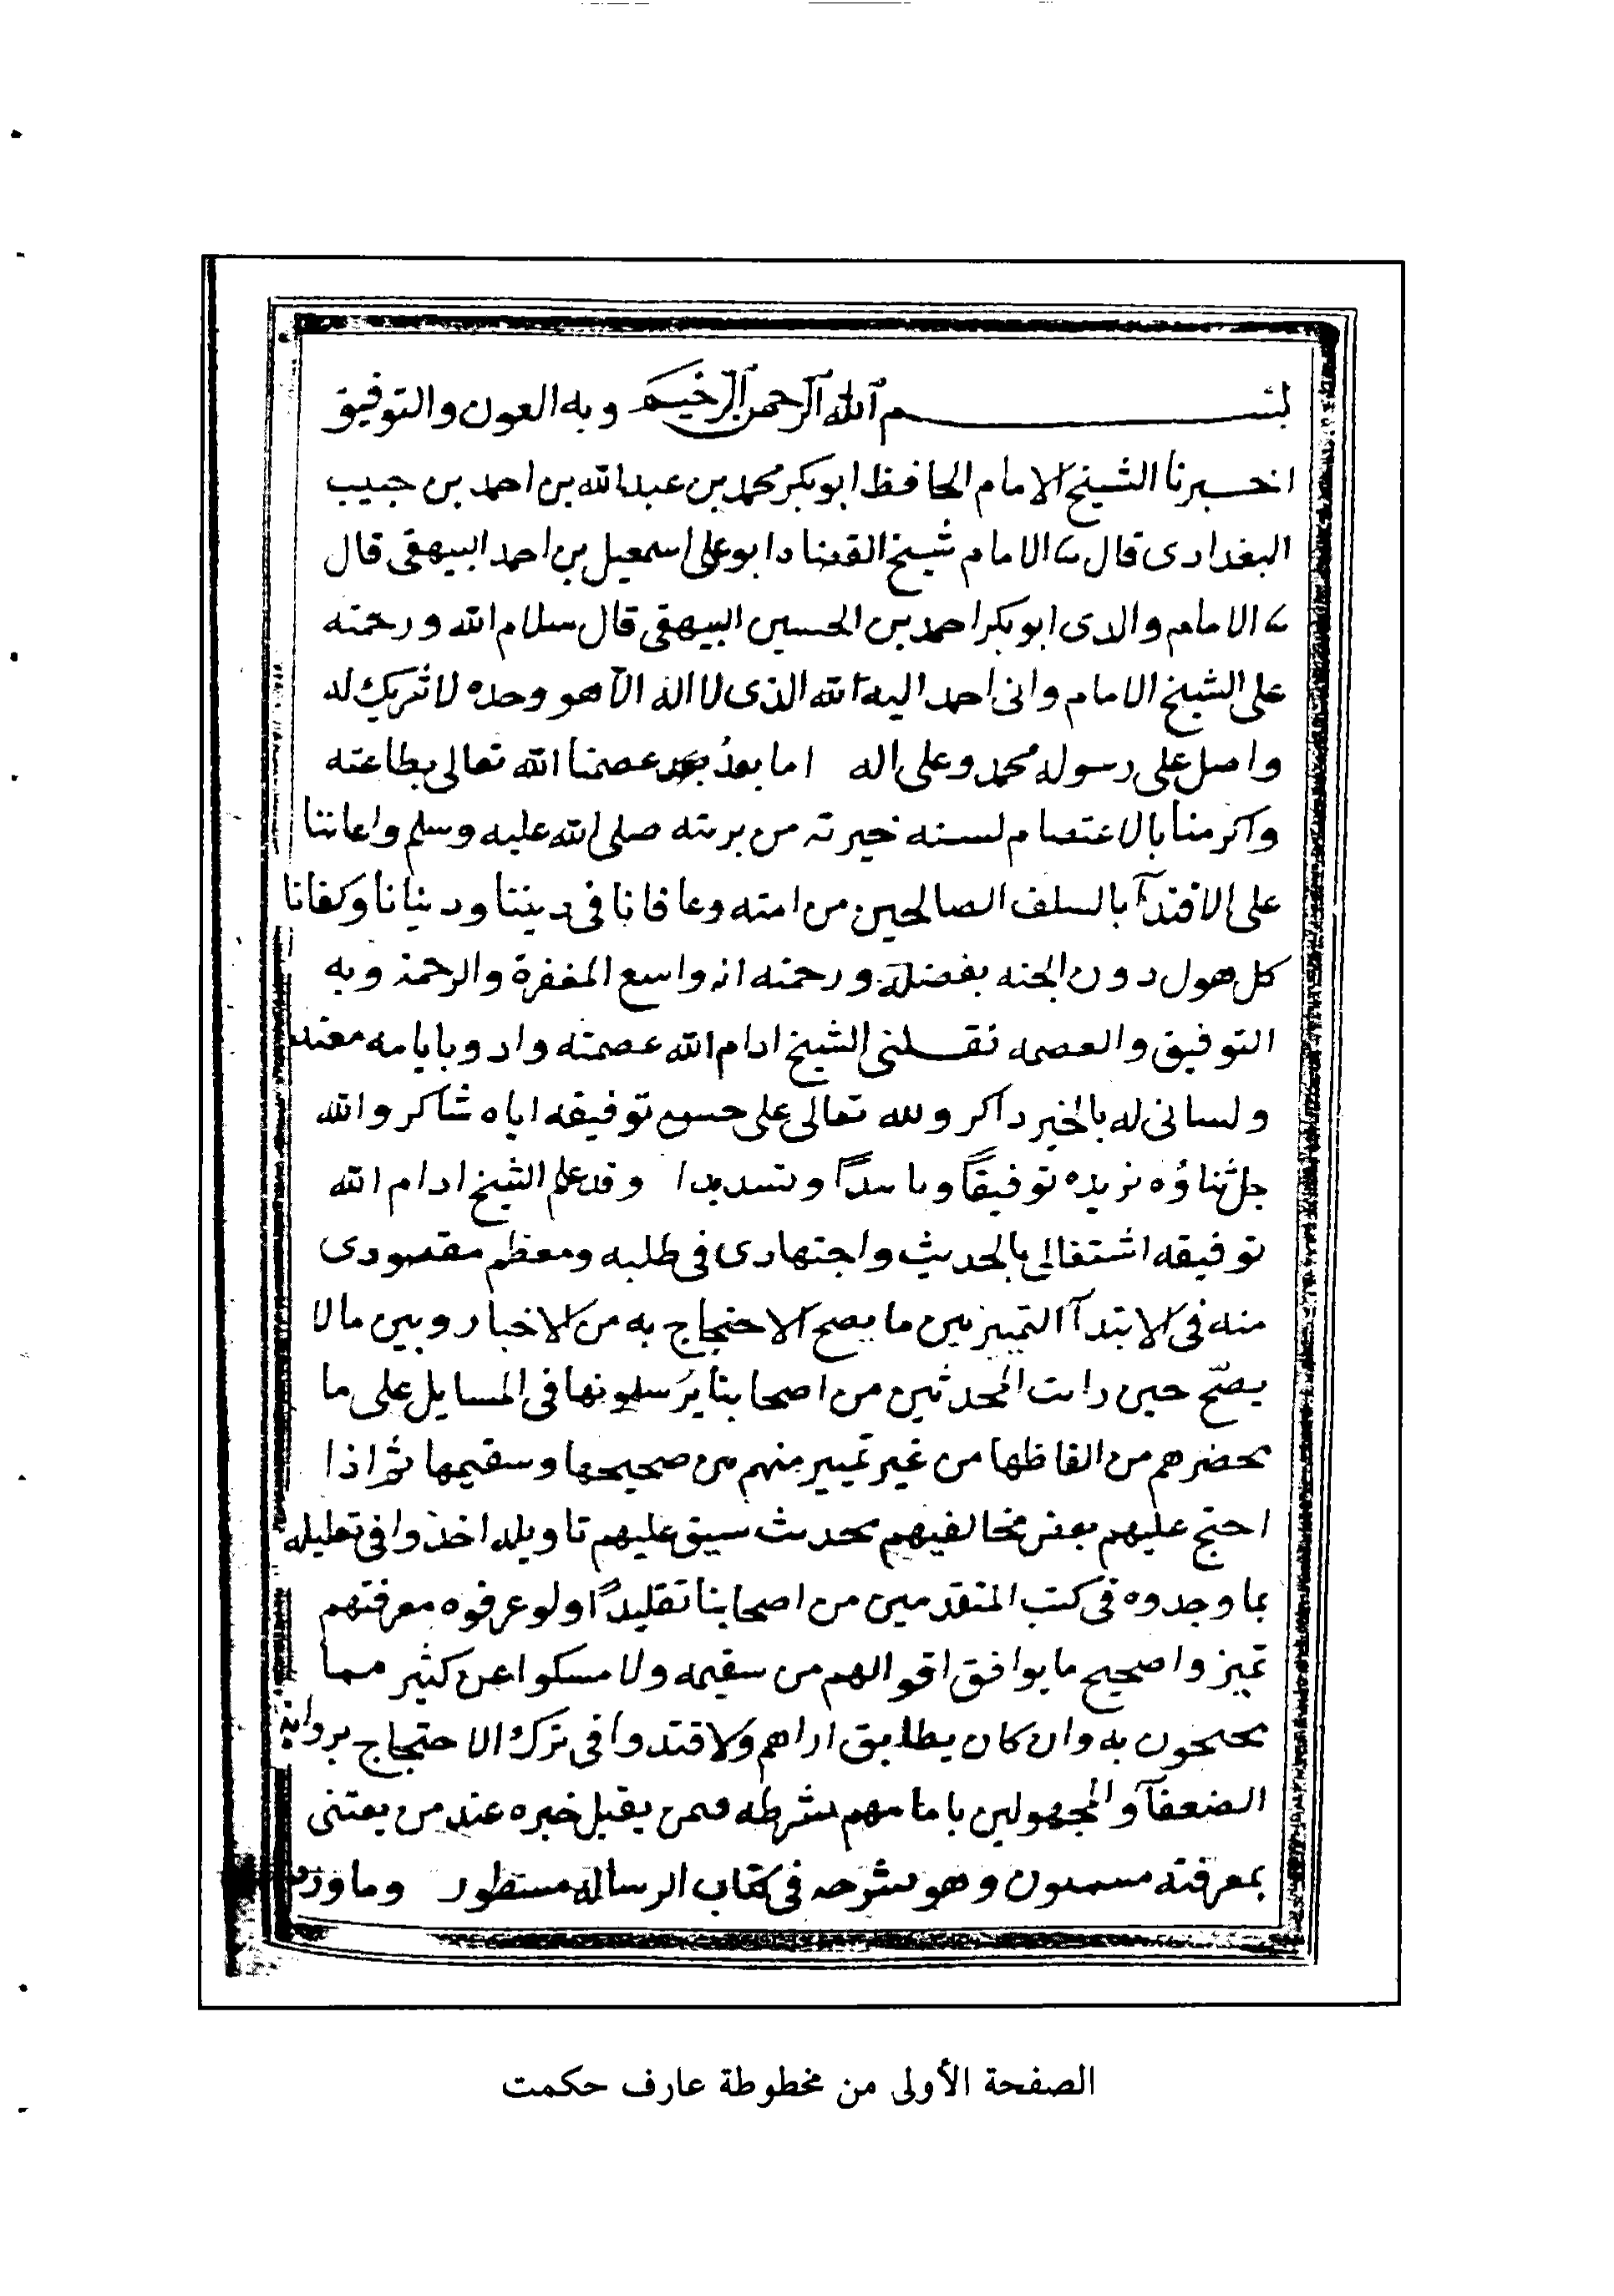 بسم الله الرحمن الرحيم وبه العون والتوفيق
اخبرنا الشيخ الامام الحافظ ابوبكر محمد بن عبدالله بن احمد بن حبيب
البغدادى قال ثنا الامام شيخ القضاه ابو على اسمعيل بن احمد البيهقى قال
ثنا الامام والدى ابو بكر احمد بن الحسين البيهقى قال سلام الله ورحمته
على الشيخ الامام وانى احمد اليه الله الذى لا اله الا هو وحده لا شريك له
واصلى على رسوله محمد وعلى اله اما بعدُ عصمنا الله تعالى بطاعته
واكرمنا بالاعتصام لسنه خيرته من بريته صلى الله عليه وسلم واعاننا
على الاقتدآ بالسلف الصالحين من امته وعافانا فى ديننا ودنيانا وكفانا
كل هول دون الجنه بفضله ورحمته انه واسع المغفرة والرحمة وبه
التوفيق والعصمه الشيخ ادام الله عصمته بايامه
ولسانى له بالخير ذاكر ولله تعالى على حسن توفيقه اياه شاكر والله
جل ثناؤه يزيده توفيقاً وتاييداً وتسديدا وقد علم الشيخ ادام الله
توفيقه اشتغالى بالحديث واجتهادى فى طلبه ومعظم مقصودى
منه فى الابتدآ التمييز بين ما يصح الاحتجاج به من الاخبار وبين مالا
يصّح حين رايت المحدثين من اصحابنا يرسلونها فى المسايل على ما
يحضرهم من الفاظها من غير تمييز منهم من صحيحها وسقيمها ثم اذا
احتج عليهم بعض مخالفيهم بحديث سيق عليهم تاويله اخذوا فى تعليله
بما وجدوه فى كتب المتقدمين من اصحابنا تقليداً ولو عرفوه معرفتهم
تميزوا صحيح ما يوافق اقوالهم من سقيمه ولا مسكوا عن كثير مما
يحتجون به وان كان يطابق اراهم ولاقتدوا فى ترك الاحتجاج برواية
الضعفآ والمجهولين بامامهم بشرطه فمن يقبل خبره عند من يعتنى
بمعرفته وهو بشرحه فى كتاب الرساله مستطور وما ورد
الصفحة الأولى من مخطوطة عارف حكمت